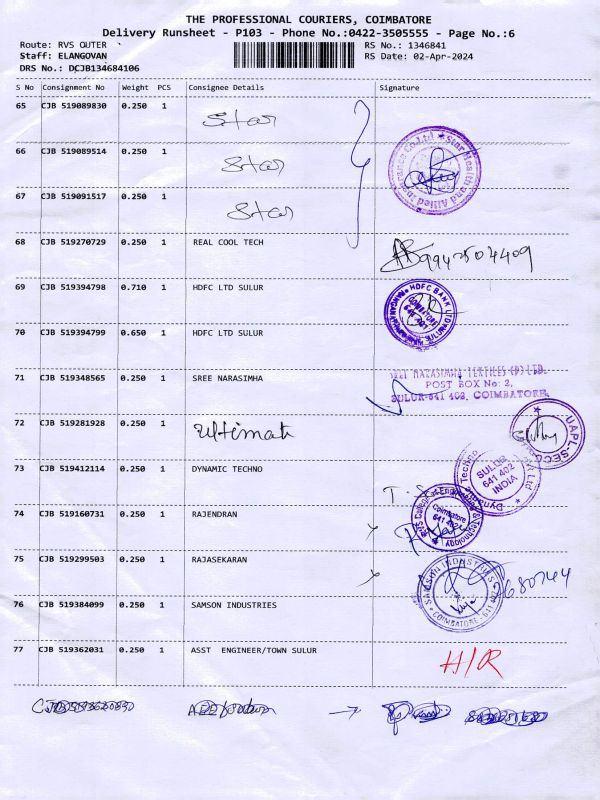 THE PROFESSIONAL COURIERS, COIMBATORE
Delivery Runsheet - P103 - Phone No.:0422-3505555 - Page No.:6
Route: RVS OUTER
RS No.: 1346841
Staff: ELANGOVAN
RS Date: 02-Apr-2024
DRS No.: DCJB134684106
S No Consignment No Weight PCS Consignee Details Signature
65 CJB 519089830 0.250 1 Star
Star Health and Allied Insurance Co.Ltd
66 CJB 519089514 0.250 1 Star
67 CJB 519091517 0.250 1 Star
68 CJB 519270729 0.250 1 REAL COOL TECH 9942504409
69 CJB 519394798 0.710 1 HDFC LTD SULUR
HDFC BANK LTD
COIMBATORE
641 402
70 CJB 519394799 0.650 1 HDFC LTD SULUR
71 CJB 519348565 0.250 1 SREE NARASIMHA
SREE NARASIMHA TEXTILES (P) LTD.
POST BOX No: 2,
SULUR-641 402, COIMBATORE.
72 CJB 519281928 0.250 1 Ultimate
UAPL-SECC
73 CJB 519412114 0.250 1 DYNAMIC TECHNO
Dynamic Techno
SULUR
641 402
INDIA
74 CJB 519160731 0.250 1 RAJENDRAN
RVS College of Engineering & Technology
Coimbatore
641 402
75 CJB 519299503 0.250 1 RAJASEKARAN
76 CJB 519384099 0.250 1 SAMSON INDUSTRIES
SAMSON INDUSTRIES
COIMBATORE - 641 402
77 CJB 519362031 0.250 1 ASST ENGINEER/TOWN SULUR H/R